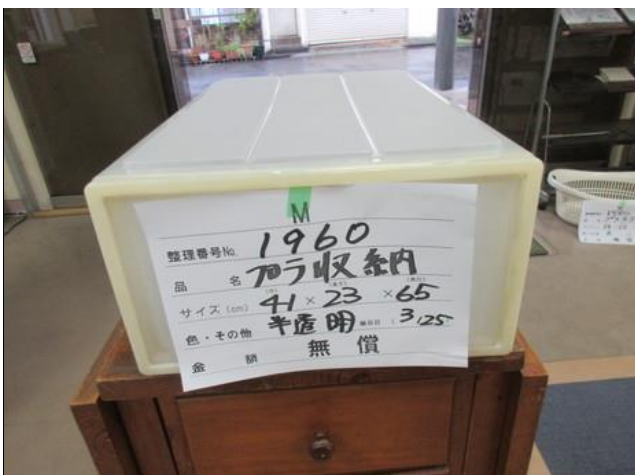 M
整理番号No. 1960
品 名 プラ収納
サイズ(cm) 41×23×65
色・その他 半透明 3/25
金 額 無 償